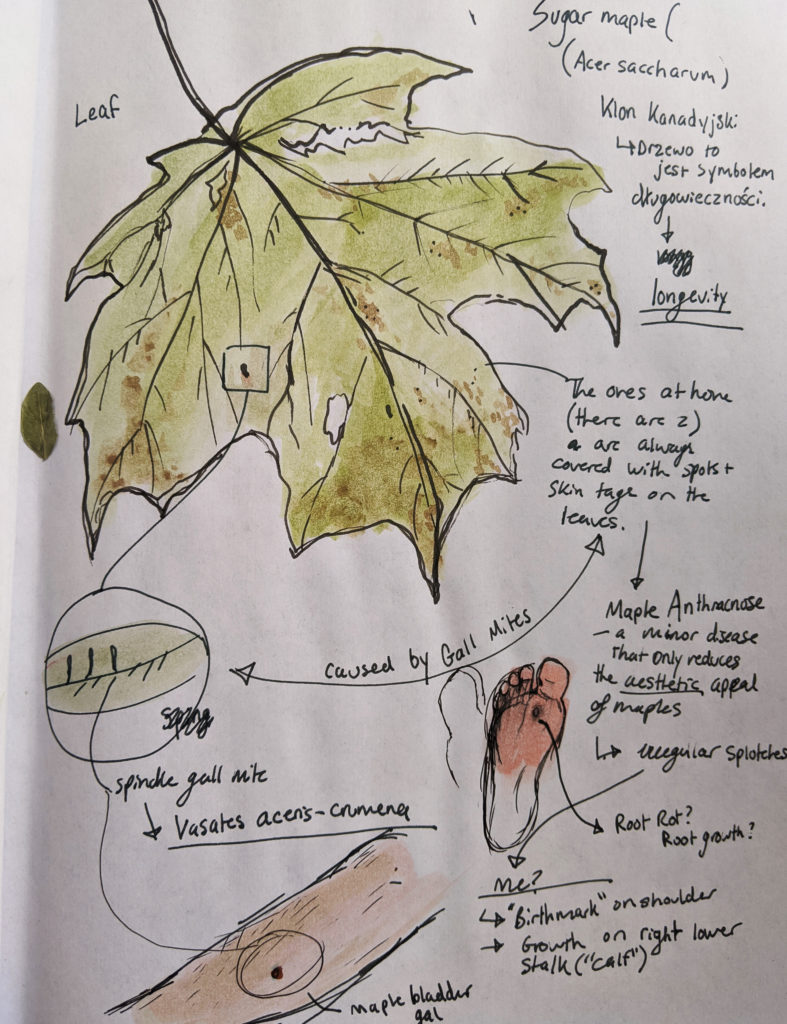 Sugar maple (
(Acer saccharum)
Leaf
Klon Kanadyjski
↳ Drzewo to
jest symbolem
długowieczności.
longevity
The ones at home
(there are 2)
are always
covered with spots +
skin tags on the
leaves.
Maple Anthracnose
– a minor disease
that only reduces
the aesthetic appeal
of maples
↳ irregular splotches
caused by Gall Mites
spindle gall mite
Vasates aceris-crumena
Root Rot?
Root growth?
me?
↳ "Birthmark" on shoulder
→ Growth on right lower
stalk ("calf")
maple bladder
gal